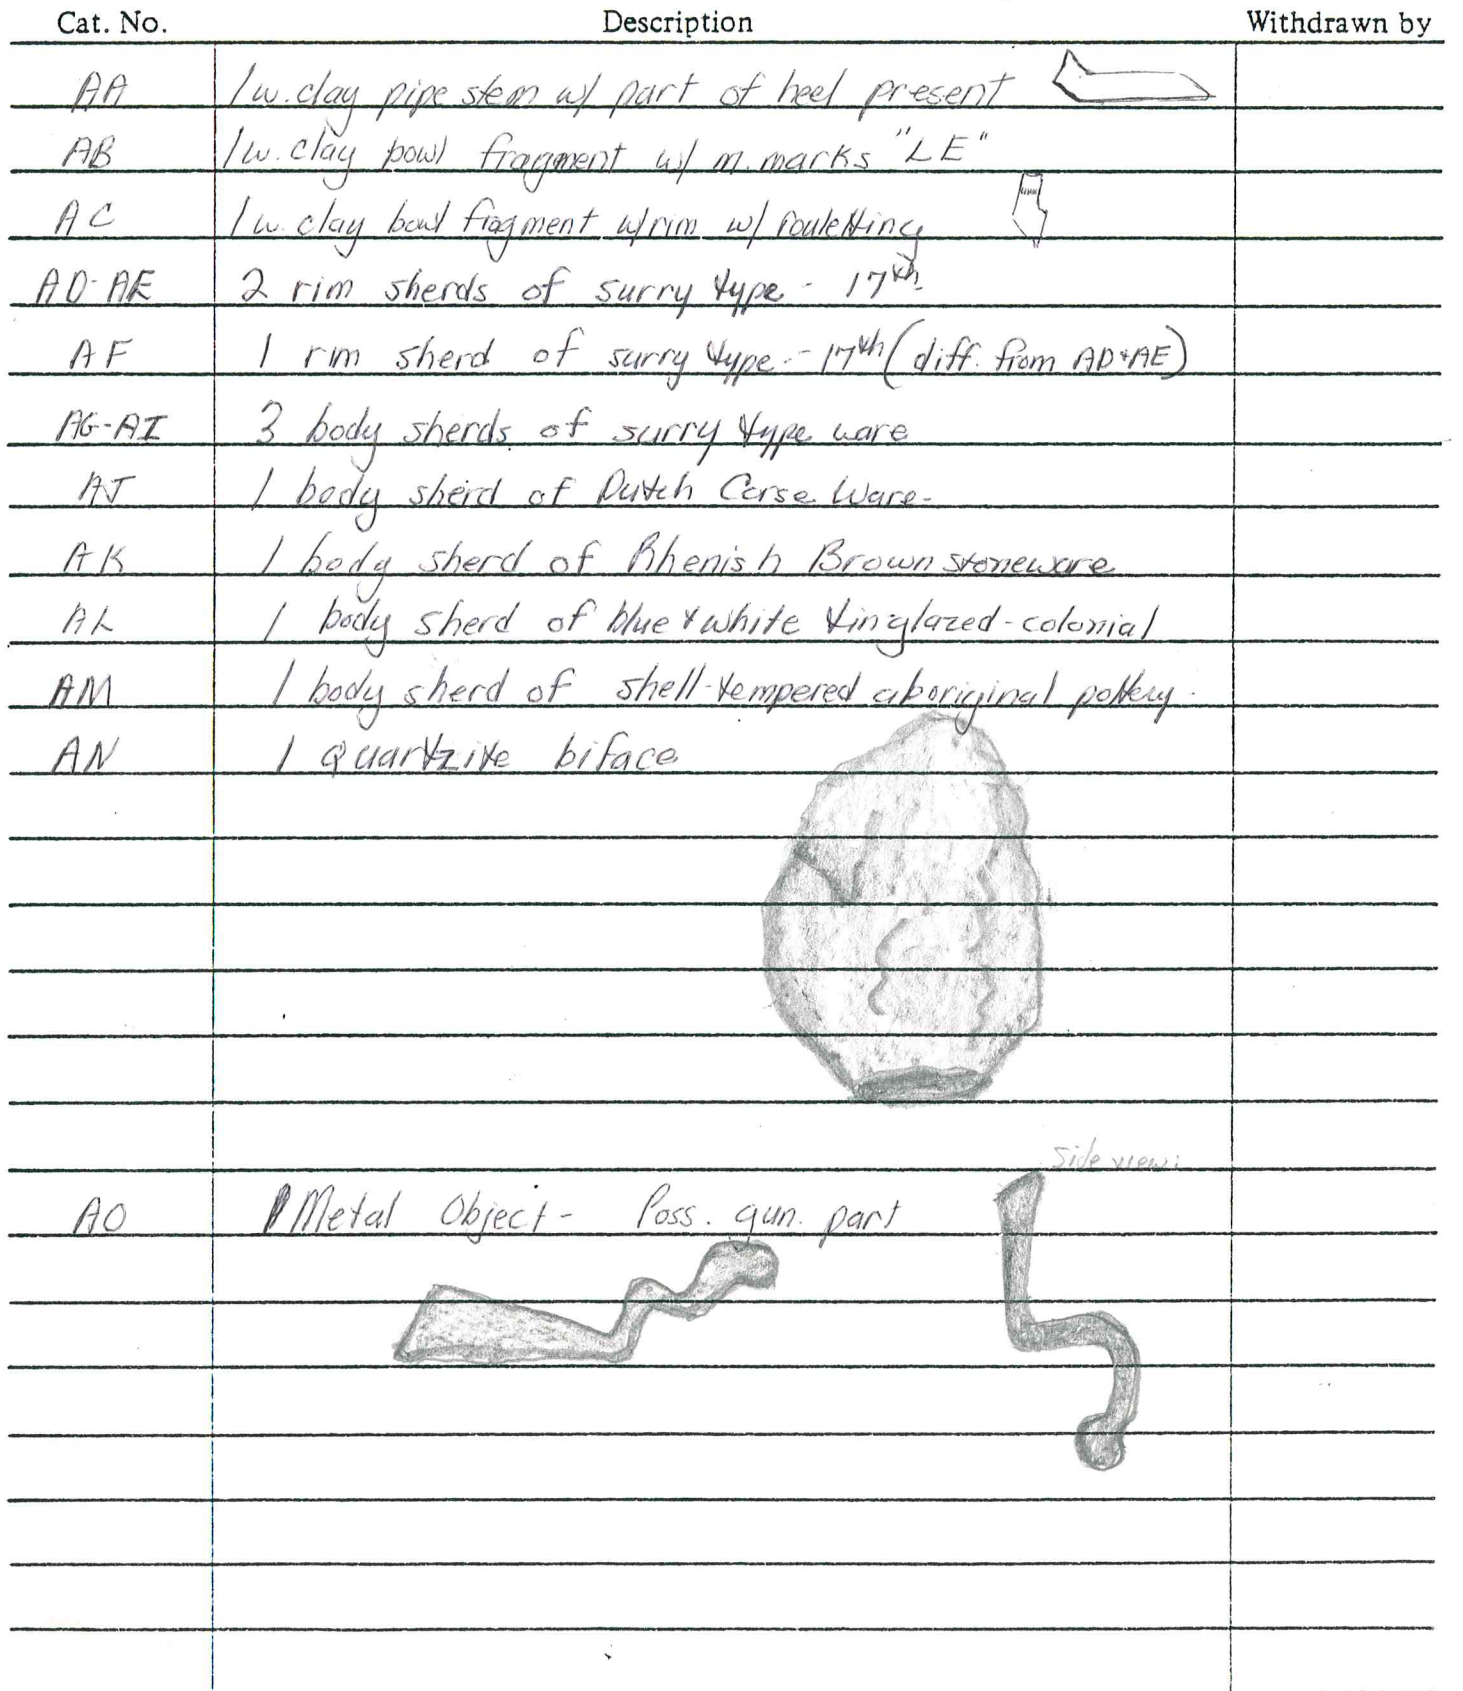 Cat. No. Description Withdrawn by
AA 1 w. clay pipe stem w/ part of heel present
AB 1 w. clay bowl fragment w/ m. marks "LE"
AC 1 w. clay bowl fragment w/rim w/ rouletting
AD-AE 2 rim sherds of surry type - 17th
AF 1 rim sherd of surry type - 17th (diff. from AD+AE)
AG-AI 3 body sherds of surry type ware
AJ 1 body sherd of Dutch Corse Ware-
AK 1 body sherd of Rhenish Brown stoneware
AL 1 body sherd of blue + white tinglazed-colonial
AM 1 body sherd of shell-tempered aboriginal pottery.
AN 1 quartzite biface
side view:
AO 1 Metal Object- Poss. gun. part